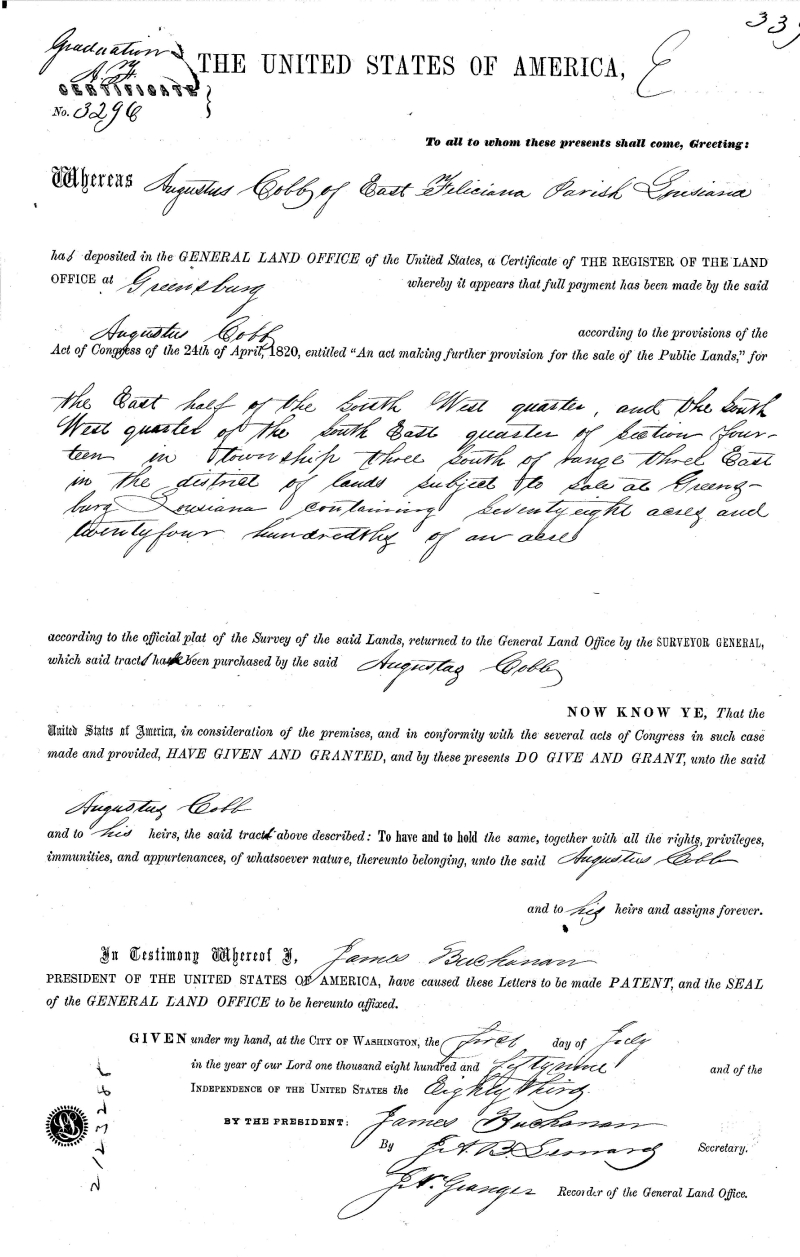 339
Graduation
CERTIFICATE
No. 3296
THE UNITED STATES OF AMERICA,
To all to whom these presents shall come, Greeting:
Whereas Augustus Cobb of East Feliciana Parish Louisiana
has deposited in the GENERAL LAND OFFICE of the United States, a Certificate of THE REGISTER OF THE LAND
OFFICE at Greensburg whereby it appears that full payment has been made by the said
Augustus Cobb according to the provisions of the
Act of Congress of the 24th of April, 1820, entitled "An act making further provision for the sale of the Public Lands," for
the East half of the South West quarter, and the South
West quarter of the South East quarter of Section four-
teen in township three South of range three East
in the district of lands subject to sale at Greens-
burg Louisiana containing seventy eight acres and
twenty four hundredths of an acre
according to the official plat of the Survey of the said Lands, returned to the General Land Office by the SURVEYOR GENERAL,
which said tracts have been purchased by the said Augustus Cobb
NOW KNOW YE, That the
United States of America, in consideration of the premises, and in conformity with the several acts of Congress in such case
made and provided, HAVE GIVEN AND GRANTED, and by these presents DO GIVE AND GRANT, unto the said
Augustus Cobb
and to his heirs, the said tracts above described: To have and to hold the same, together with all the rights, privileges,
immunities, and appurtenances, of whatsoever nature, thereunto belonging, unto the said Augustus Cobb
and to his heirs and assigns forever.
In Testimony Whereof I, James Buchanan
PRESIDENT OF THE UNITED STATES OF AMERICA, have caused these Letters to be made PATENT, and the SEAL
of the GENERAL LAND OFFICE to be hereunto affixed.
GIVEN under my hand, at the CITY OF WASHINGTON, the first day of July
in the year of our Lord one thousand eight hundred and fifty nine and of the
INDEPENDENCE OF THE UNITED STATES the Eighty third
BY THE PRESIDENT: James Buchanan
By J. A. B. Leonard Secretary.
J. N. Granger Recorder of the General Land Office.